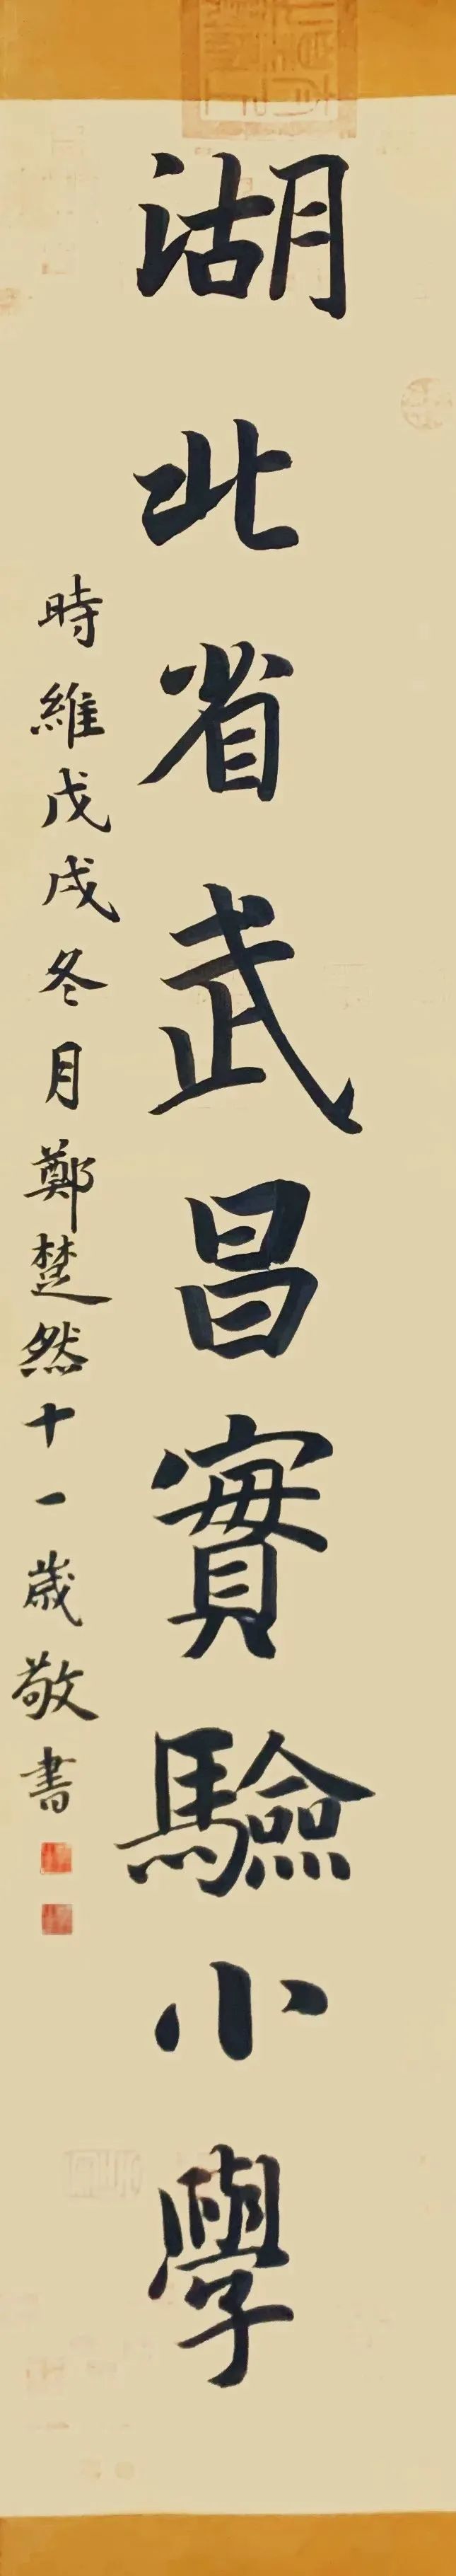 湖北省武昌實驗小學
時維戊戌冬月鄭楚然十一歲敬書